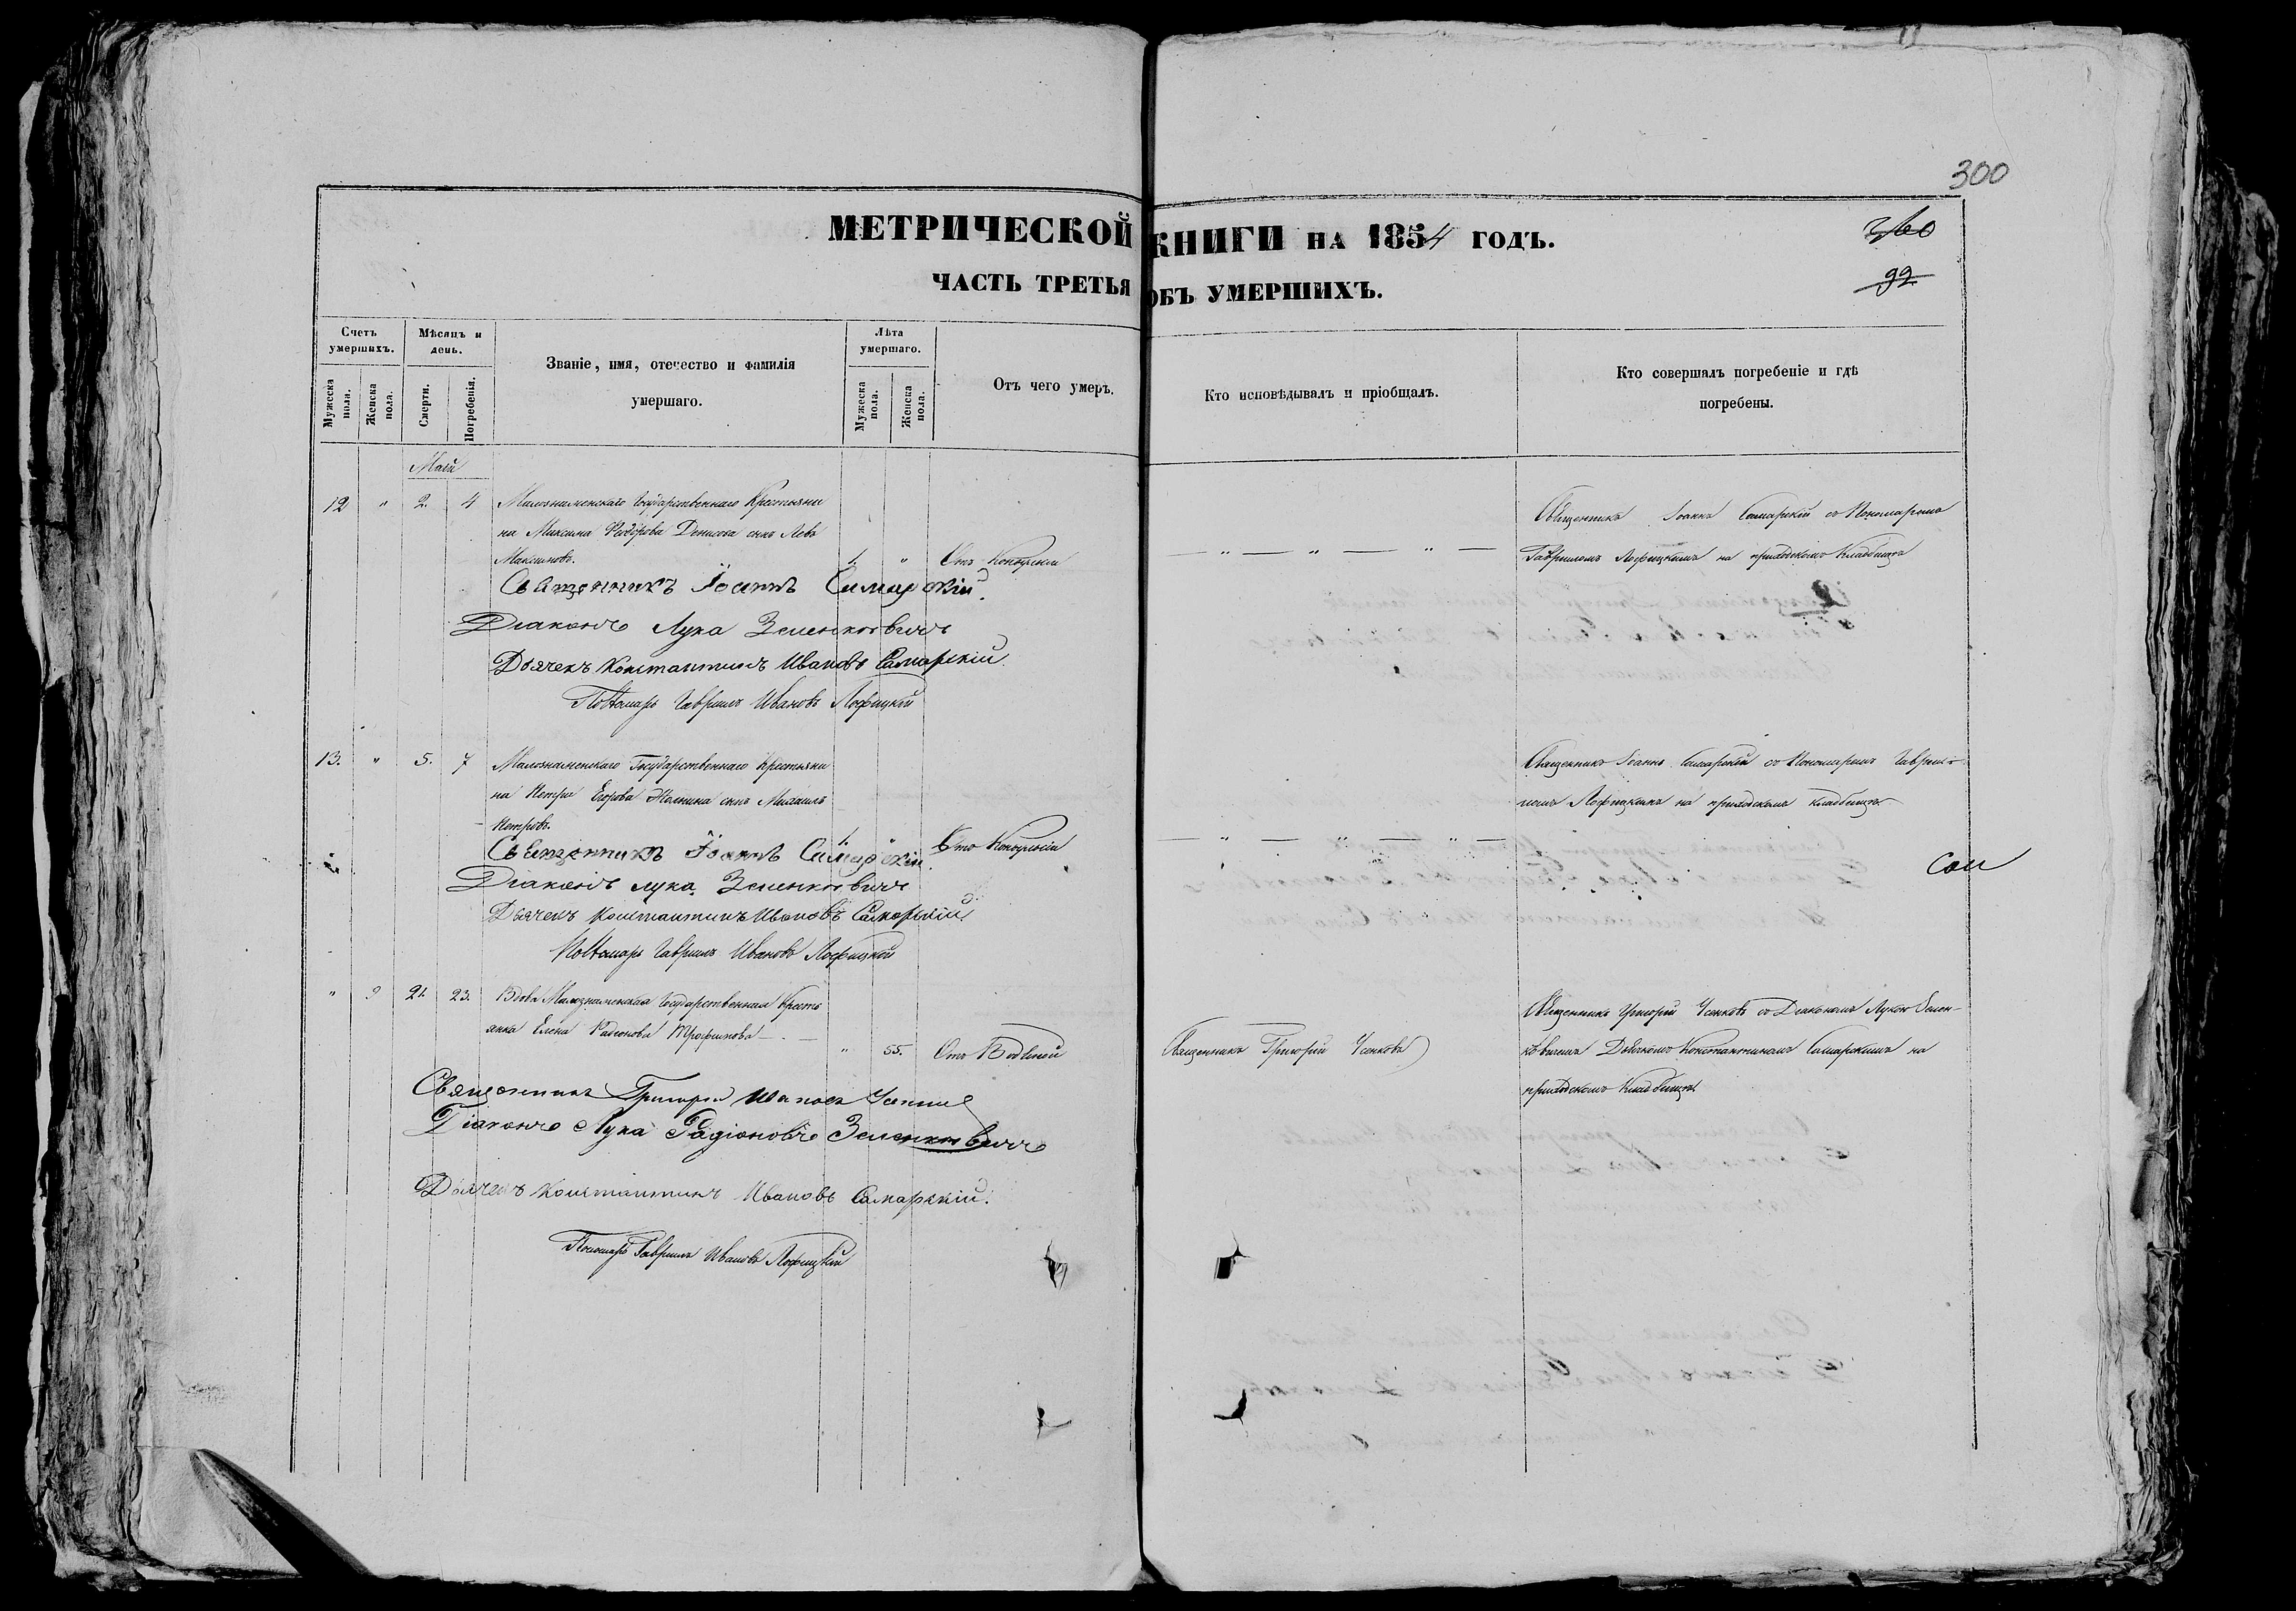 300
МЕТРИЧЕСКОЙ КНИГИ НА 1854 ГОДЪ.
360
ЧАСТЬ ТРЕТЬЯ ОБЪ УМЕРШИХЪ.
99
Счетъ умершихъ.
Мѣсяцъ и день.
Званіе, имя, отечество и фамилія умершаго.
Лѣта умершаго.
Отъ чего умеръ.
Кто исповѣдывалъ и пріобщалъ.
Кто совершалъ погребеніе и гдѣ погребены.
Мужеска пола.
Женска пола.
Смерти.
Погребенія.
Мужеска пола.
Женска пола.
Маій
12 " 2. 4 Малознаменскаго Государственнаго Крестьяни
на Максима Федорова Денисова сынъ Левъ
Максимовъ. 1. " Отъ Конвульсіи — " — " — " —
Священникъ Іоаннъ Самарскій съ Пономаремъ
Гавріиломъ Лофицкимъ на приходскомъ кладбищѣ
Священникъ Іоаннъ Самарскій.
Діаконъ Лука Зеленкевичъ
Дьячекъ Константинъ Ивановъ Самарскій.
Пономарь Гавріилъ Ивановъ Лофицкій
13. " 5. 7 Малознаменскаго Государственнаго Крестьяни
на Петра Егорова сынъ Михаилъ
Петровъ. 1 Отъ Конвульсіи — " — " — " —
Священникъ Іоаннъ Самарскій съ Пономаремъ Гавріи-
ломъ Лофицкимъ на приходскомъ кладбищѣ
Священникъ Іоаннъ Самарскій
Діаконъ Лука Зеленкевичъ
Дьячекъ Константинъ Ивановъ Самарскій
Пономарь Гавріилъ Ивановъ Лофицкій
" 9 21. 23. Вдова Малознаменская Государственная Кресть
янка Елена Радіонова Трофимова
" 55. Отъ Водяной
Священникъ Григорій Усенковъ
Священникъ Григорій Усенковъ съ Діакономъ Лукою Зелен-
кевичемъ Дьячкомъ Константиномъ Самарскимъ на
приходскомъ кладбищѣ.
Священникъ Григорій
Діаконъ Лука Радіоновъ Зеленкевичъ
Дьячекъ Константинъ Ивановъ Самарскій.
Пономарь Гавріилъ Ивановъ Лофицкій